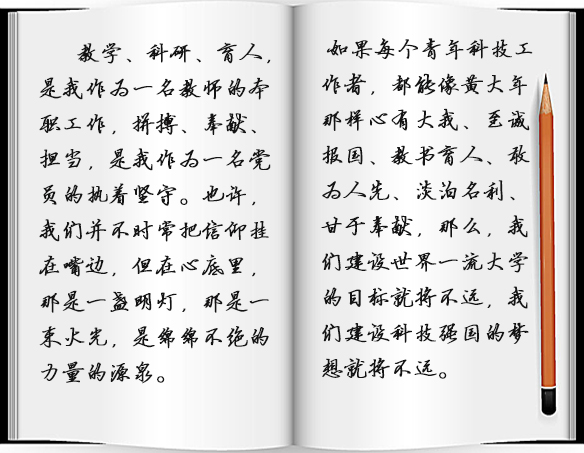 教学、科研、育人，
是我作为一名教师的本
职工作，拼搏、奉献、
担当，是我作为一名党
员的执着坚守。也许，
我们并不时常把信仰挂
在嘴边，但在心底里，
那是一盏明灯，那是一
束火光，是绵绵不绝的
力量的源泉。
如果每个青年科技工
作者，都能像黄大年
那样心有大我、至诚
报国、教书育人、敢
为人先、淡泊名利、
甘于奉献，那么，我
们建设世界一流大学
的目标就将不远，我
们建设科技强国的梦
想就将不远。